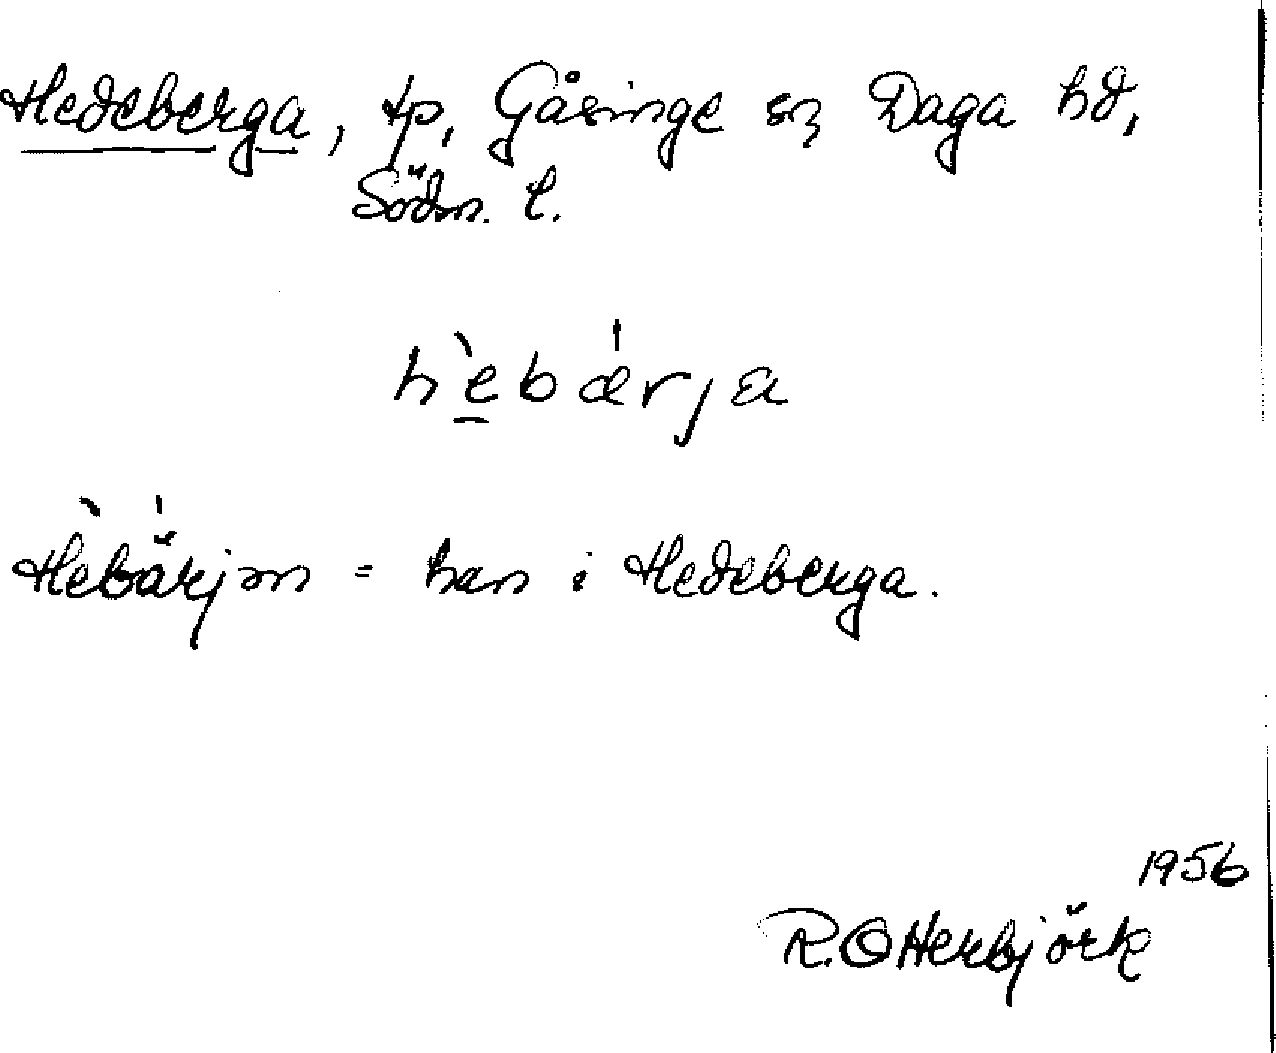 Hedeberga, tp, Gåsinge sn, Daga hd,
Södm. l.
hèbǽrja
Hèbä́rjan = han i Hedeberga.
1956
R. Otterbjörk